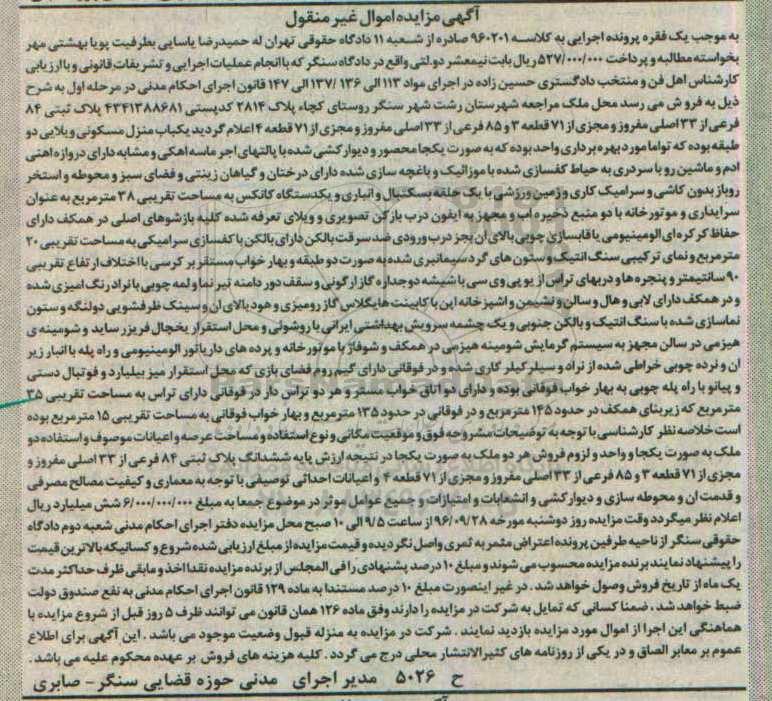 آگهی مزایده اموال غیر منقول
به موجب یک فقره پرونده اجرایی به کلاسه ۹۶۰۲۰۱ صادره از شعبه ۱۱ دادگاه حقوقی تهران له حمیدرضا یاسایی بطرفیت پویا بهشتی مهر
بخواسته مطالبه و پرداخت ۵۲۷/۰۰۰/۰۰۰ ریال بابت نیمعشر دولتی واقع در دادگاه سنگر که با انجام عملیات اجرایی و تشریفات قانونی و با ارزیابی
کارشناس اهل فن و منتخب دادگستری حسین زاده در اجرای مواد ۱۱۳ الی ۱۳۶ /۱۳۷ الی ۱۴۷ قانون اجرای احکام مدنی در مرحله اول به شرح
ذیل به فروش می رسد محل ملک مراجعه شهرستان رشت شهر سنگر روستای کچاء پلاک ۲۸۱۴ کدپستی ۴۳۴۱۳۸۸۶۸۱ پلاک ثبتی ۸۴
فرعی از ۳۳ اصلی مفروز و مجزی از ۷۱ قطعه ۳ و ۸۵ فرعی از ۳۳ اصلی مفروز و مجزی از ۷۱ قطعه ۴ اعلام گردید یکباب منزل مسکونی ویلایی دو
طبقه بوده که تواما مورد بهره برداری واحد بوده که به صورت یکجا محصور و دیوار کشی شده با پالتهای اجر ماسه اهکی و مشابه دارای دروازه اهنی
ادم و ماشین رو با سردری به حیاط کفسازی شده با موزائیک و باغچه سازی شده دارای درختان و گیاهان زینتی و فضای سبز و محوطه و استخر
روباز بدون کاشی و سرامیک کاری و زمین ورزشی با یک حلقه بسکتبال و انباری و یکدستگاه کانکس به مساحت تقریبی ۳۸ مترمربع به عنوان
سرایداری و موتورخانه با دو منبع ذخیره اب و مجهز به ایفون درب بازکن تصویری و ویلای تعرفه شده کلیه بازشوهای اصلی در همکف دارای
حفاظ کرکره ای الومینیومی با قابسازی چوبی بالای ان بجز درب ورودی ضد سرقت بالکن دارای بالکن با کفسازی سرامیکی به مساحت تقریبی ۲۰
مترمربع و نمای ترکیبی سنگ انتیک و ستون های گرد سیمانبری شده به صورت دو طبقه و بهار خواب مستقر بر کرسی با اختلاف ارتفاع تقریبی
۹۰ سانتیمتر و پنجره ها و دربهای تراس از یو پی وی سی با شیشه دوجداره گاز ارگونی و سقف دور دامنه تیر نما و لمه چوبی با نراد رنگ امیزی شده
و در همکف دارای لابی و هال و سالن و نشیمن و اشپزخانه اپن با کابینت هایگلاس گاز رومیزی و هود بالای ان و سینک ظرفشویی دولنگه و ستون
نماسازی شده با سنگ انتیک و بالکن جنوبی و یک چشمه سرویش بهداشتی ایرانی با روشوئی و محل استقرار یخچال فریزر ساید و شومینه ی
هیزمی در سالن مجهز به سیستم گرمایش شومینه هیزمی در همکف و شوفاژ با موتورخانه و پرده های داریاتور الومینیومی و راه پله با انبار زیر
ان و نرده چوبی خراطی شده از نراد و سیلر کیلر کاری شده و در فوقانی دارای گیم روم فضای بازی که محل استقرار میز بیلیارد و فوتبال دستی
و پیانو با راه پله چوبی به بهار خواب فوقانی بوده و دارای دو اتاق خواب مستر و هر دو تراس دار در فوقانی دارای تراس به مساحت تقریبی ۳۵
مترمربع که زیربنای همکف در حدود ۱۴۵ مترمربع و در فوقانی در حدود ۱۳۵ مترمربع و بهار خواب فوقانی به مساحت تقریبی ۱۵ مترمربع بوده
است خلاصه نظر کارشناسی با توجه به توضیحات مشروحه فوق و موقعیت مکانی و نوع استفاده و مساحت عرصه و اعیانات موصوف و استفاده دو
ملک به صورت یکجا و واحد و لزوم فروش هر دو ملک به صورت یکجا در نتیجه ارزش پایه ششدانگ پلاک ثبتی ۸۴ فرعی از ۳۳ اصلی مفروز و
مجزی از ۷۱ قطعه ۳ و ۸۵ فرعی از ۳۳ اصلی مفروز و مجزی از ۷۱ قطعه ۴ و اعیانات احداثی توصیفی با توجه به معماری و کیفیت مصالح مصرفی
و قدمت ان و محوطه سازی و دیوار کشی و انشعابات و امتیازات و جمیع عوامل موثر در موضوع جمعا به مبلغ ۶/۰۰۰/۰۰۰/۰۰۰ شش میلیارد ریال
اعلام نظر میگردد وقت مزایده روز دوشنبه مورخه ۹۶/۰۹/۲۸ از ساعت ۹/۵ الی ۱۰ صبح محل مزایده دفتر اجرای احکام مدنی شعبه دوم دادگاه
حقوقی سنگر از ناحیه طرفین پرونده اعتراض مثمر به ثمری واصل نگردیده و قیمت مزایده از مبلغ ارزیابی شده شروع و کسانیکه بالاترین قیمت
را پیشنهاد نمایند برنده مزایده محسوب می شوند و مبلغ ۱۰ درصد پشنهادی را فی المجلس از برنده مزایده نقدا اخذ و مابقی ظرف حداکثر مدت
یک ماه از تاریخ فروش وصول خواهد شد . در غیر اینصورت مبلغ ۱۰ درصد مستندا به ماده ۱۲۹ قانون اجرای احکام مدنی به نفع صندوق دولت
ضبط خواهد شد ، ضمنا کسانی که تمایل به شرکت در مزایده را دارند وفق ماده ۱۲۶ همان قانون می توانند ظرف ۵ روز قبل از شروع مزایده با
هماهنگی این اجرا از اموال مورد مزایده بازدید نمایند . شرکت در مزایده به منزله قبول وضعیت موجود می باشد . این آگهی برای اطلاع
عموم بر معابر الصاق و در یکی از روزنامه های کثیرالانتشار محلی درج می گردد . کلیه هزینه های فروش بر عهده محکوم علیه می باشد .
ح ۵۰۲۶ مدیر اجرای مدنی حوزه قضایی سنگر - صابری